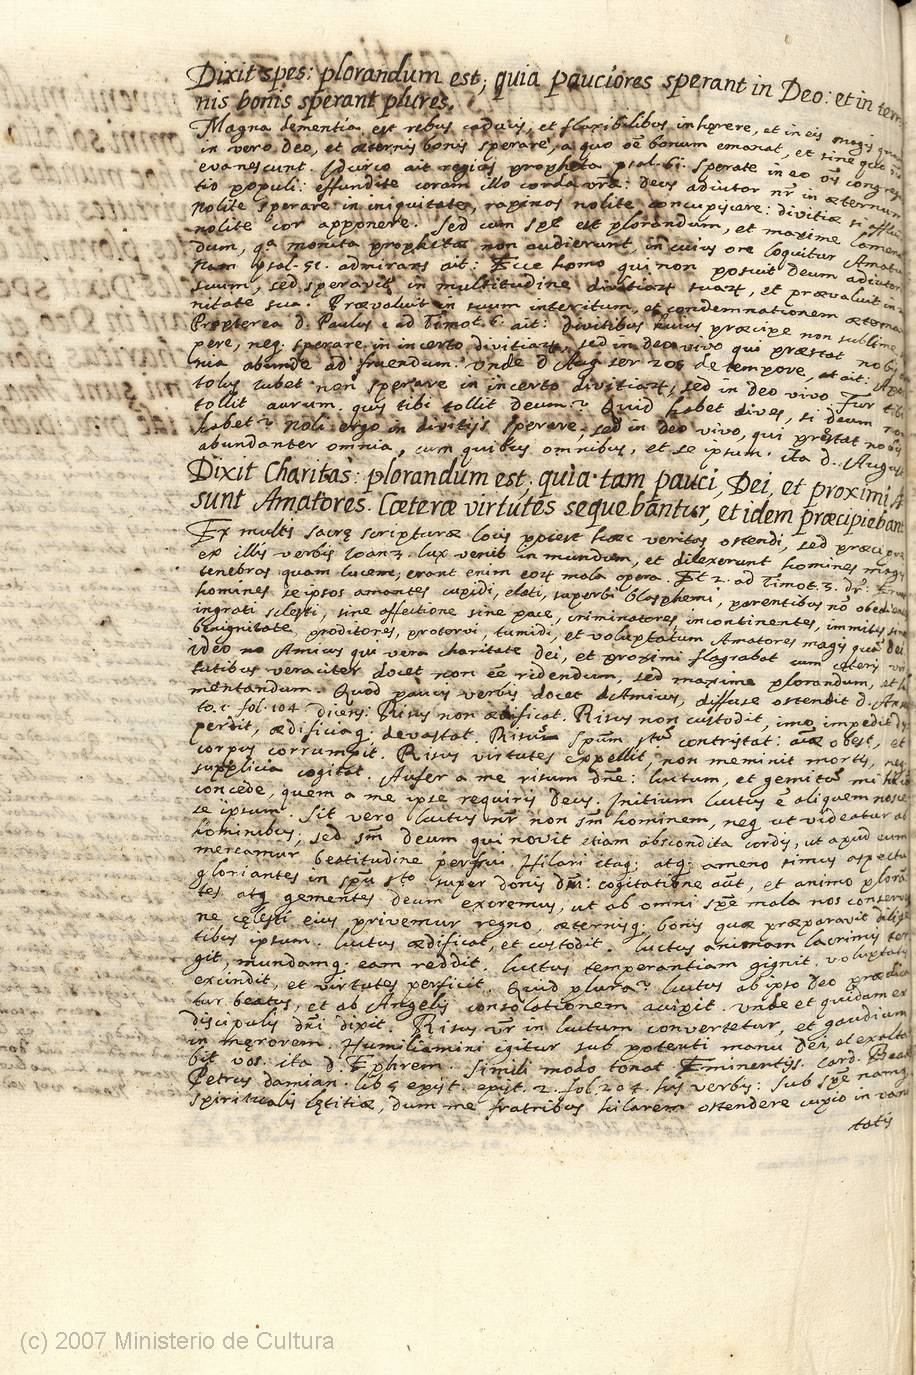 Dixit spes: plorandum est; quia pauciores sperant in Deo: et in terre
nis bonis sperant plures.
Magna dementia est rebus caducis, et flaxibilibus inhęrere, et in eis magis quam
in vero Deo, et æternis bonis sperare, a quo oẽ bonum emanat, et sine quo
evanescunt. Idcirco ait regius propheta psal. 61. Sperate in eo oẽs congrega
tio populi: effundite coram illo corda vrã: deus adiutor nr̃ in æternum
Nolite sperare in iniquitate, rapinas nolite concupiscere: divitiæ si afflu
nolite cor apponere. Sed cum spe est plorandum, et maxime lamen
dum, qa monita prophetæ non audierunt, in cuius ore loquitur Amatu
Nam psal. 51. admirans ait: Ecce homo qui non posuit Deum adiutor
suum, sed speravit in multitudine divitiarum suarum, et prævaluit in
nitate sua. Prævaluit in suum interitum, et condemnationem æterna
Propterea d. Paulus 1 ad Timot. 6. ait: divitibus huius præcipe non sublime
pere, neq. sperare in incerto divitiarum, sed in deo vivo qui præstat nobis
nia abunde ad fruendum. Unde d Aug ser 205 de tempore, ait: Apo
tolus iubet non sperare in incerto divitiarum, sed in deo vivo. Fur tibi
tollit aurum. quis tibi tollit deum? Quid habet dives, si deum non
habet? Noli ergo in divitijs sperare, sed in deo vivo, qui præstat nobis
abundanter omnia, cum quibus omnibus, et se ipsum. ita d. Augus
Dixit Charitas: plorandum est; quia tam pauci, Dei, et proximi
sunt Amatores. Cæteræ virtutes sequebantur, et idem præcipiebant
Ex multis sacrę scripturæ locis potest hæc veritas ostendi, sed præcipue
ex illis verbis Ioan 3. lux venit in mundum, et dilexerunt homines magis
tenebras quam lucem; erant enim eorum mala opera. Et 2. ad Timot. 3. dr̃: Erunt
homines se ipsos amantes cupidi, elati, superbi blasphemi, parentibus nõ obedien
ingrati scelesti, sine affectione sine pace, criminatores, incontinentes, immites sine
benignitate, proditores, protervi, tumidi, et voluptatum Amatores magis quã Dei
Ideo Amicus qui vera charitate Dei, et proximi flagrabat cum cæteris vir
tutibus veraciter docet non eẽ ridendum, sed maxime plorandum, et la
mentandum. Quod paucis verbis docet diffuse ostendit d.
to. 1. fol. 104 dicens: Risus non ædificat. Risus non custodit, imo impedit
perdit, ædificiaq. devastat. Risus Spm̃ stũ contristat: aĩæ obest, et
corpus corrumpit. Risus virtutes expellit; non meminit mortis, neq
supplicia cogitat. Aufer a me risum dñe: luctum, et gemitũ mihi
concede, quem a me ipse requiris Deus. Initium luctus ẽ aliquem nosce
se ipsum. Sit vero luctus nr̃ non sm̃ hominem, neq ut videatur ab
hominibus; sed sm̃ deum qui novit etiam abscondita cordis, ut apud eum
mereamur beatitudine perfrui. Hilari itaq; atq; ameno simus aspectu
gloriantes in spũ sto super donis dñi: cogitatione aũt, et animo plorã
tes atq gementes deum exoremus, ut ab omni spẽ mala nos conserve
ne cęlesti eius privemur regno, æternisq. bonis quæ præparavit dilige
tibus ipsum. luctus ædificat, et custodit. luctus animam lacrimis ter
git, mundamq; eam reddit. luctus temperantiam gignit, voluptates
excindit, et virtutes perficit. Quid plura? luctus ab ipso Deo prædica
tur beatus, et ab Angelis consolationem accipit. unde et quidam ex
discipulis dñi dixit. Risus vr̃ in luctum convertetur, et gaudium
in męrorem. Humiliamini igitur sub potenti manu Dei, et exalta
bit vos. ita d. Ephrem. Simili modo tonat Eminentiss. Card. Beat
Petrus damian. lib 5 epist. epist. 2. fol. 204. his verbis: Sub spẽ namq
spiritualis lętitiæ, dum me fratribus hilarem ostendere cupio in vani
tatis
(c) 2007 Ministerio de Cultura